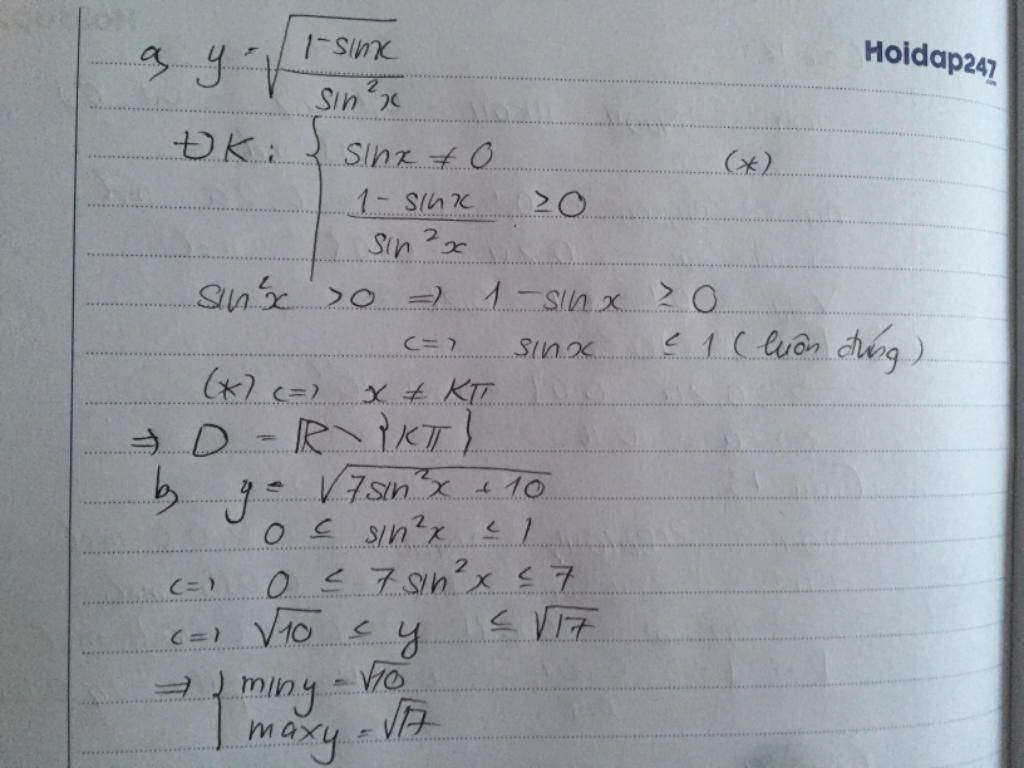 Hoidap247
a, y = √((1-sinx)/(sin²x))
ĐK: { sinx ≠ 0 (*)
(1 - sinx)/(sin²x) ≥ 0
sin²x > 0 => 1 - sinx ≥ 0
<=> sinx ≤ 1 (luôn đúng)
(*) <=> x ≠ Kπ
=> D = ℝ \ {Kπ}
b, y = √(7sin²x + 10)
0 ≤ sin²x ≤ 1
<=> 0 ≤ 7sin²x ≤ 7
<=> √10 ≤ y ≤ √17
=> { miny = √10
maxy = √17